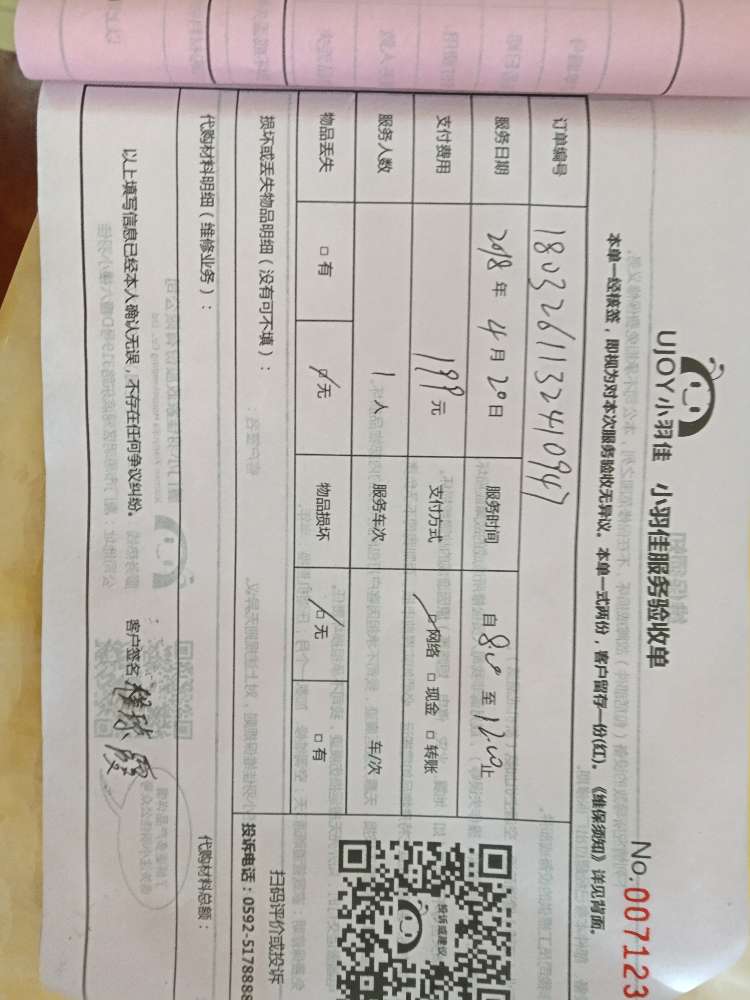 UJOY小羽佳 小羽佳服务验收单
No.007123
本单一经核签，即视为对本次服务验收无异议。本单一式两份，客户留存一份(红)。《维保须知》详见背面。
订单编号 1803261132410947
服务日期 2018年4月20日 服务时间 自8:00至12:00止
支付费用 199元 支付方式 ☑网络 □现金 □转账
服务人数 1人 服务车次 车/次
物品丢失 □有 ☑无 物品损坏 ☑无 □有
损坏或丢失物品明细（没有可不填）：
投诉或建议
扫码评价或投诉
投诉电话：0592-5178888
代购材料明细（维修业务）： 代购材料总额：
以上填写信息已经本人确认无误，不存在任何争议纠纷。 客户签名：